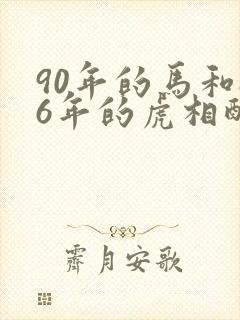 90年的馬和
6年的虎相
霽月安歌